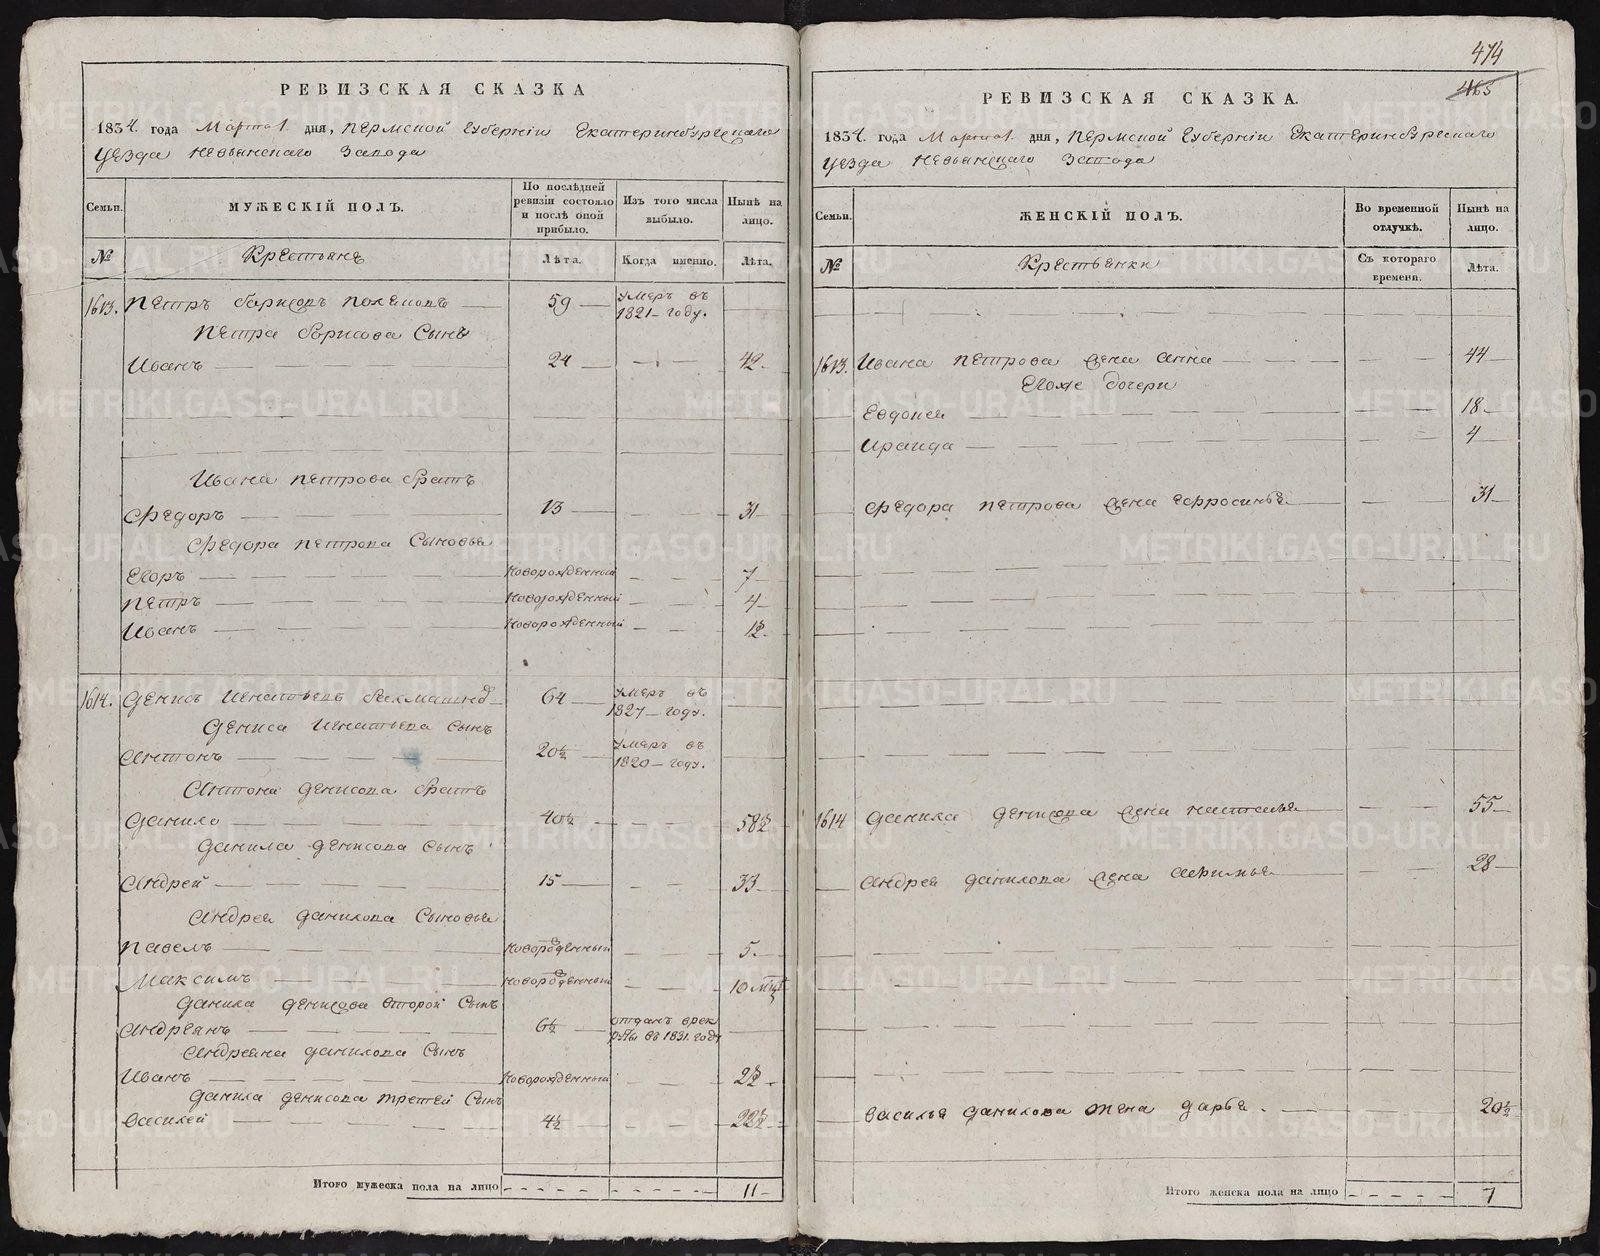 РЕВИЗСКАЯ СКАЗКА
1834. года Марта 1. дня, Пермской Губернiи Екатеринбургскаго
уезда Невьянскаго Завода
Семьи.
МУЖЕСКIЙ ПОЛЪ.
По послѣдней ревизiи состояло и послѣ оной прибыло.
Изъ того числа выбыло.
Нынѣ на лицо.
№
Крестьяне
Лѣта.
Когда именно.
Лѣта.
1613. Петръ Борисовъ 59 умеръ въ 1821 году.
Петра Борисова Сынъ
Иванъ 24 42
Ивана Петрова братъ
Федоръ 13 31
Федора Петрова Сыновья
Егоръ Новорожденный 7
Петръ Новорожденный 4
Иванъ Новорожденный 1½
1614. Денисъ Игнатьевъ 64 умеръ въ 1827 году.
Дениса Игнатьева Сынъ
Антонъ 20½ умеръ въ 1820 году.
Антона Денисова братъ
Данило 40½ 58½
Данила Денисова Сынъ
Андрей 15 33
Андрея Данилова Сыновья
Павелъ Новорожденный 5
Максимъ Новорожденный 10 мцъ
Данила Денисова второй Сынъ
Андреянъ 6½ отданъ в рекруты въ 1831 году
Андреяна Данилова Сынъ
Иванъ Новорожденный 2½
Данила Денисова третей Сынъ
Василей 4½ 22½
Итого мужеска пола на лицо 11
474
465
РЕВИЗСКАЯ СКАЗКА.
1834. года Марта 1. дня, Пермской Губернiи Екатеринбургскаго
уезда Невьянскаго Завода
Семьи.
ЖЕНСКIЙ ПОЛЪ.
Во временной отлучкѣ.
Нынѣ на лицо.
№
Крестьянки
Съ котораго времени.
Лѣта.
1613. Ивана Петрова жена Анна 44
Егоже дочери
Евдокея 18
Ираида 4
Федора Петрова жена Ефросинья 31
1614 Данила Денисова жена Наталья 55
Андрея Данилова жена Афимья 28
Василья Данилова жена Дарья. 20½
Итого женска пола на лицо 7
METRIKI.GASO-URAL.RU